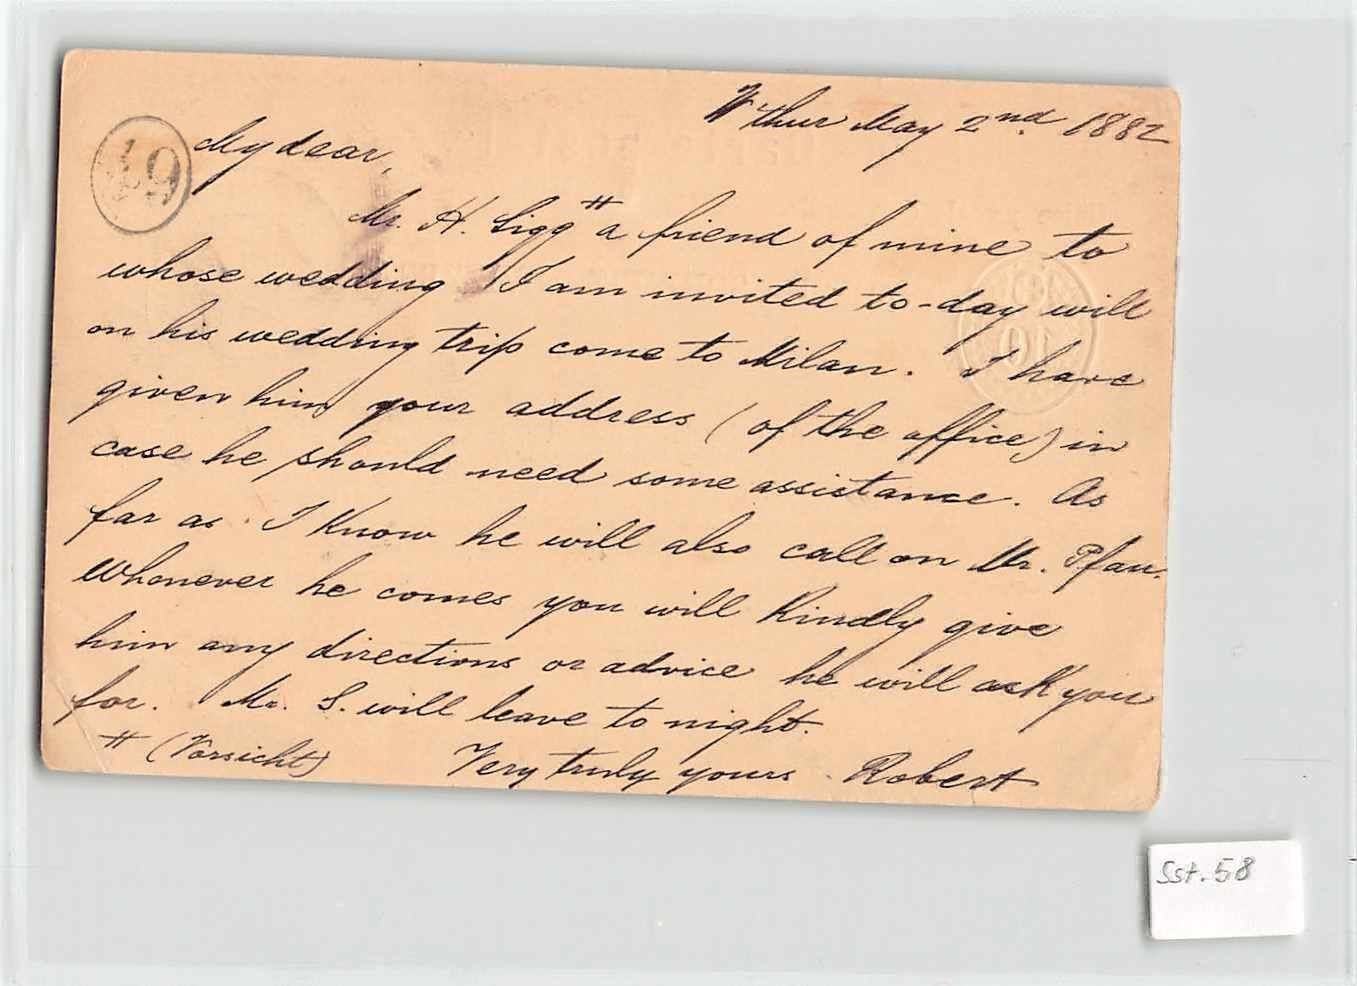 W'thur May 2nd 1882
49
My dear,
Mr. H. Sigg # a friend of mine to
whose wedding I am invited to-day will
on his wedding trip come to Milan. I have
given him your address (of the office) in
case he should need some assistance. As
far as I know he will also call on Mr. Pfau.
Whenever he comes you will kindly give
him any directions or advice he will ask you
for. Mr. S. will leave to night.
# (Vorsicht) Very truly yours Robert
10
Sst. 58